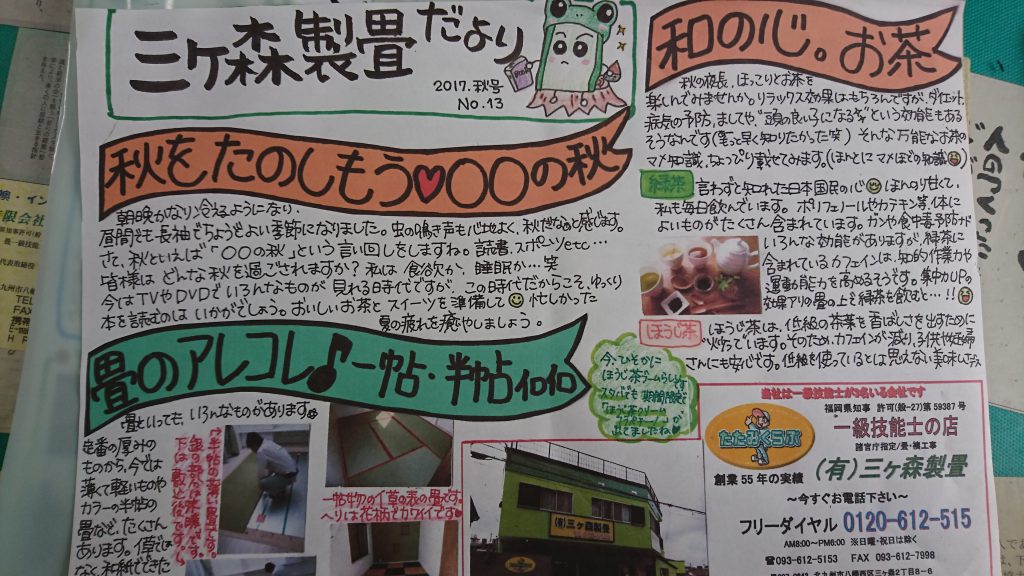 三ケ森製畳だより
2017.秋号
No.13
秋をたのしもう♥〇〇の秋
朝晩かなり冷えるようになり、
昼間でも長袖でちょうどよい季節になりました。虫の鳴き声も心地よく、秋だなぁと感じます。
さて、秋といえば「〇〇の秋」という言い回しをしますね。読書、スポーツetc…
皆様は どんな秋を過ごされますか？私は 食欲か、睡眠か…笑
今はTVやDVDでいろんなものが 見れる時代ですが、この時代だからこそ、ゆっくり
本を読むのは いかがでしょう。おいしいお茶とスイーツを準備して 忙しかった
夏の疲れを癒やしましょう。
畳のアレコレ♪一帖・半帖
畳といっても、いろんなものがあります。
定番の厚みの
ものから、今では
薄くて軽いものや
カラーの半帖の
畳など、たくさん
あります。
なく、和紙でできた
一帖物のイ草の表の畳です。
ヘリは花柄でカワイイです
和の心。お茶
秋の夜長、ほっこりとお茶を
楽しんでみませんか。リラックス効果はもちろんですが、ダイエット、
病気の予防、ましてや、"頭の良い子になる"という効能もある
そうなんです(もっと早く知りたかった笑) そんな万能なお茶の
マメ知識、ちょっぴり載せてみます。(ほんとにマメほどの知識)
緑茶 言わずと知れた日本国民の心 ほんのり甘くて、
私も毎日飲んでいます。ポリフェノールやカテキン等、体に
よいものがたくさん含まれています。ガンや食中毒予防など
いろんな効能がありますが、緑茶に
含まれているカフェインは、知的作業力や
運動能力を高めるそうです。集中力UPの
効果アリの畳の上で緑茶を飲むと…!!
ほうじ茶 ほうじ茶は、低級の茶葉を香ばしさを出すために
炒っています。そのため、カフェインが減り、子供や妊婦
さんにも安心です。低級を使っているとは思えない美味しさ
今、ひそかに
ほうじ茶ブームらしいです
スタバでも期間限定
出てましたね
当社は一級技能士が3名いる会社です
福岡県知事 許可(般-27)第59387号
一級技能士の店
諸官庁指定/畳・襖工事
たたみくらぶ
創業55年の実績
(有)三ヶ森製畳
～今すぐお電話下さい～
フリーダイヤル 0120-612-515
AM8:00～PM6:00 ※日曜・祝日は除く
☎093-612-5153 FAX 093-612-7998
北九州市八幡西区三ヶ森2丁目8-6
(有)三ヶ森製畳